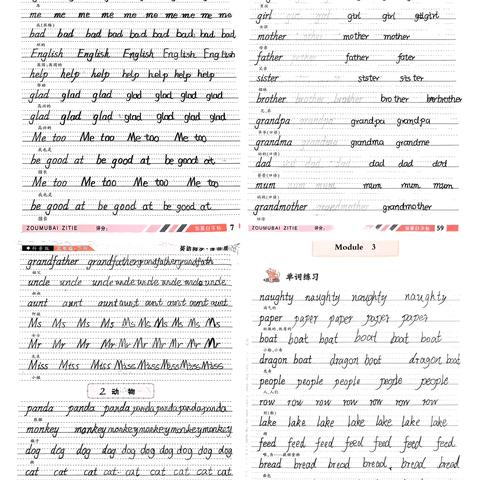 me me me me me me me me me
bad bad bad bad bad bad bad bad
坏的
English English English English
英语;英国的
help help help help help help
帮助
glad glad glad glad glad glad
高兴的
glad glad glad glad glad glad
高兴的
Me too Me too Me too Me too
我也是
be good at be good at be good at
擅长
Me too Me too Me too Me too
我也是
be good at be good at be good at
擅长
ZOUMUBAI ZITIE 评分: 邹慕白字帖 7
girl girl girl girl
女孩
mother mother mother
母亲
father father father
父亲
sister sister sister
brother brother brother brother brother
grandpa grandpa grandpa
grandma grandma grandma
dad dad dad dad dad
mum mum mum mum mum
grandmother grandmother
ZOUMUBAI ZITIE 评分: 邹慕白字帖 59
grandfather grandfather grandfather grandfath
祖父
uncle uncle uncle uncle uncle uncle
aunt aunt aunt aunt aunt aunt
Ms Ms Ms Ms Ms Ms Ms
Mr Mr Mr Mr Mr Mr Mr
先生
Miss Miss Miss Miss Miss Miss
小姐
2 动物
panda panda panda panda panda panda
熊猫
monkey monkey monkey monkey monkey
猴子
dog dog dog dog dog dog dog
狗
cat cat cat cat cat cat
Module 3
单词练习
naughty naughty naughty naughty
paper paper paper paper paper
boat boat boat boat boat
dragon boat dragon boat dragon boat
龙舟
people people people people people
人们
row row row row row row
lake lake lake lake lake lake
湖
feed feed feed feed feed feed
bread bread bread bread bread